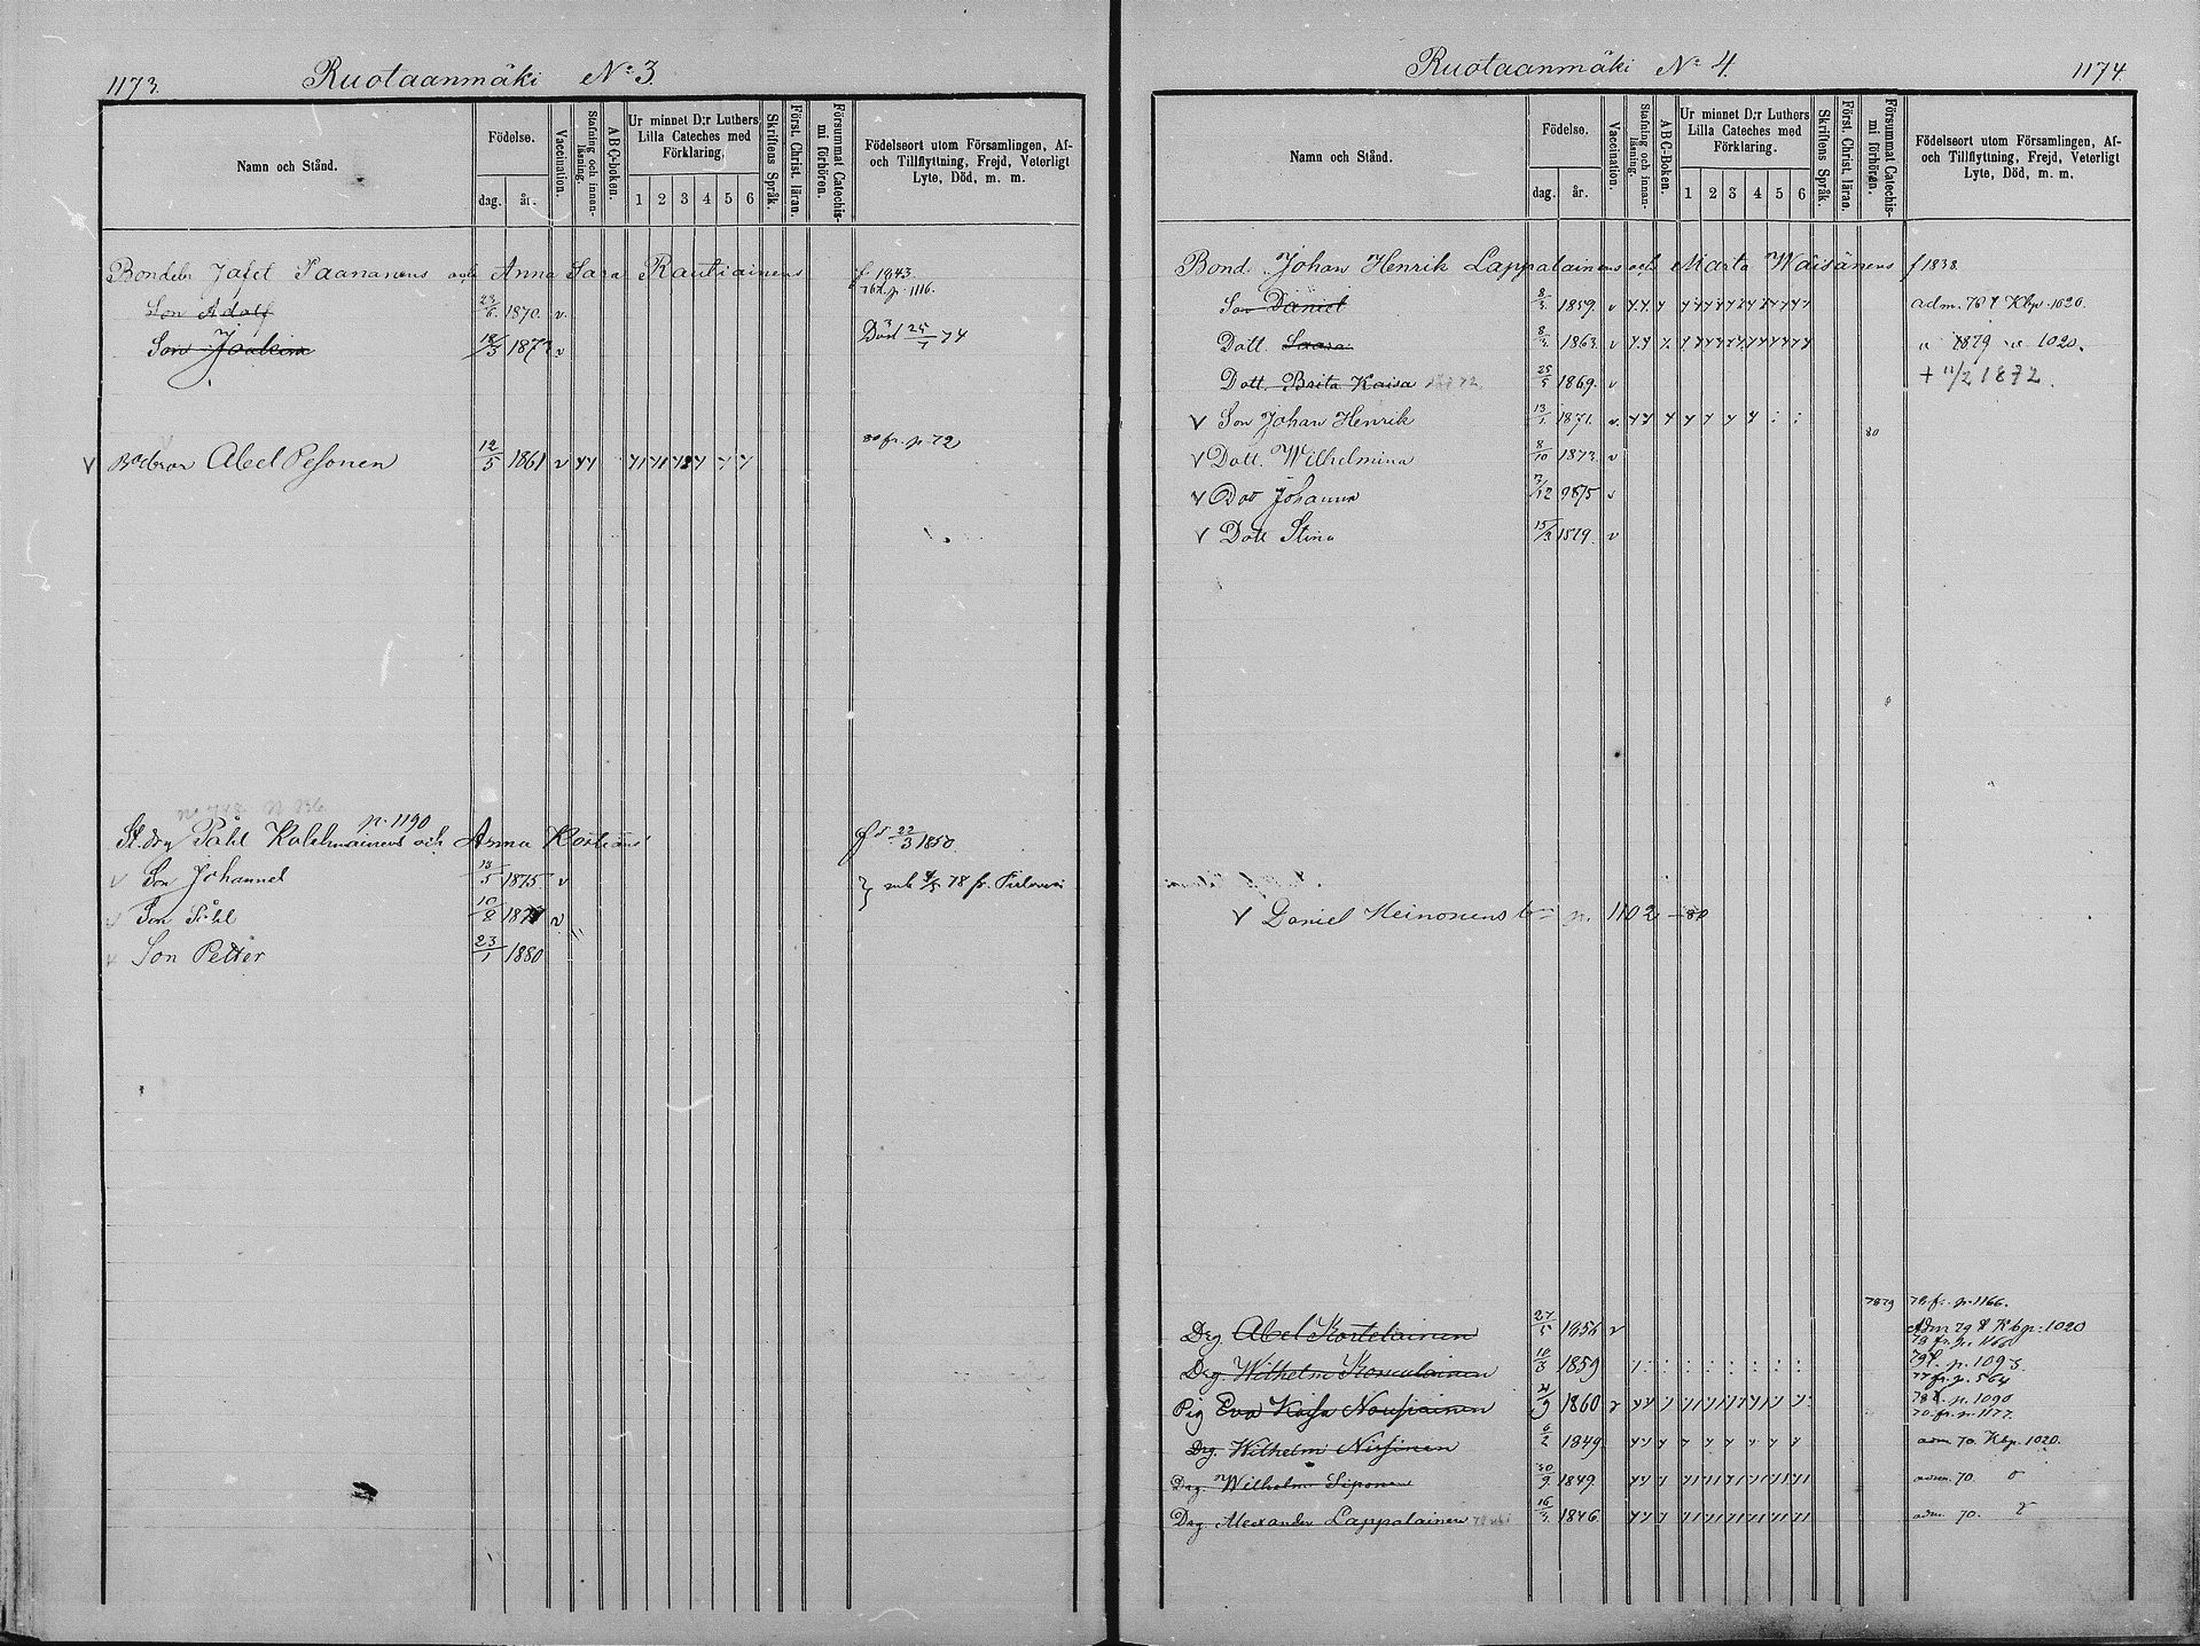 1173.
Ruotaanmäki No 3.
Namn och Stånd.
Födelse.
dag.
år.
Vaccination.
Stafning och innanläsning.
ABC-boken.
Ur minnet D:r Luthers Lilla Cateches med Förklaring.
1 2 3 4 5 6
Skriftens Språk.
Först. Christ. läran.
Försummat Catechismi förhören.
Födelseort utom Församlingen, Af- och Tillflyttning, Frejd, Veterligt Lyte, Död, m. m.
Bondebr Jafet Paananens och Anna Sara Rautiainens f 1843.
76 t. p. 1116.
Son Adolf 23/6 1870. v.
Son Joakim 18/3 1873 v Död 25/1 74
80 fr. p. 72
V Abel Pesonen 12/5 1861 v
p. 1190
St. drg Påhl Kolehmainens och Anna fd 22/3 1850.
V Son Johannes 13/5 1875 v
V Son Påhl 10/8 187 v
V Son Petter 23/1 1880
Ruotaanmäki No 4.
1174.
Namn och Stånd.
Födelse.
dag.
år.
Vaccination.
Stafning och innanläsning.
ABC-Boken.
Ur minnet D:r Luthers Lilla Cateches med Förklaring.
1 2 3 4 5 6
Skriftens Språk.
Först. Christ. läran.
Försummat Catechismi förhören.
Födelseort utom Församlingen, Af- och Tillflyttning, Frejd, Veterligt Lyte, Död, m. m.
Bond. Johan Henrik Lappalainens och Marta Wäisänens f 1838.
Son Daniel 1859. v adm. 78 Kbp. 1020.
Dott. Saara 1863. v " 1879 " 1020.
Dott. Brita Kaisa 25/5 1869. v + 11/2 1872.
V Son Johan Henrik 13/1 1871. v.
80
V Dott. Wilhelmina 8/10 1873. v
V Dot Johanna /12 1875 v
V Dott Stina 15/3 1879. v
V Daniel Heinonens p. 1102 - 80
7879 78 fr. p. 1166.
Drg. Abel Kortelainen 27/5 1856 v Adm 79 Kbp: 1020
79 fr. p. 1166
Drg. Wilhelm 10/3 1859 79 t. p. 1093.
77 fr. p. 564
Pig Eva Kaisa Nousiainen 1860 v 78 t. p. 1090
70. fr. p. 1177.
Drg. Wilhelm Nissinen 6/2 1849. adm. 70. Kbp. 1020.
Drg. Wilhelm Siponen 30/9 1849. adm. 70
Drg. Alexander Lappalainen 1846. adm. 70.